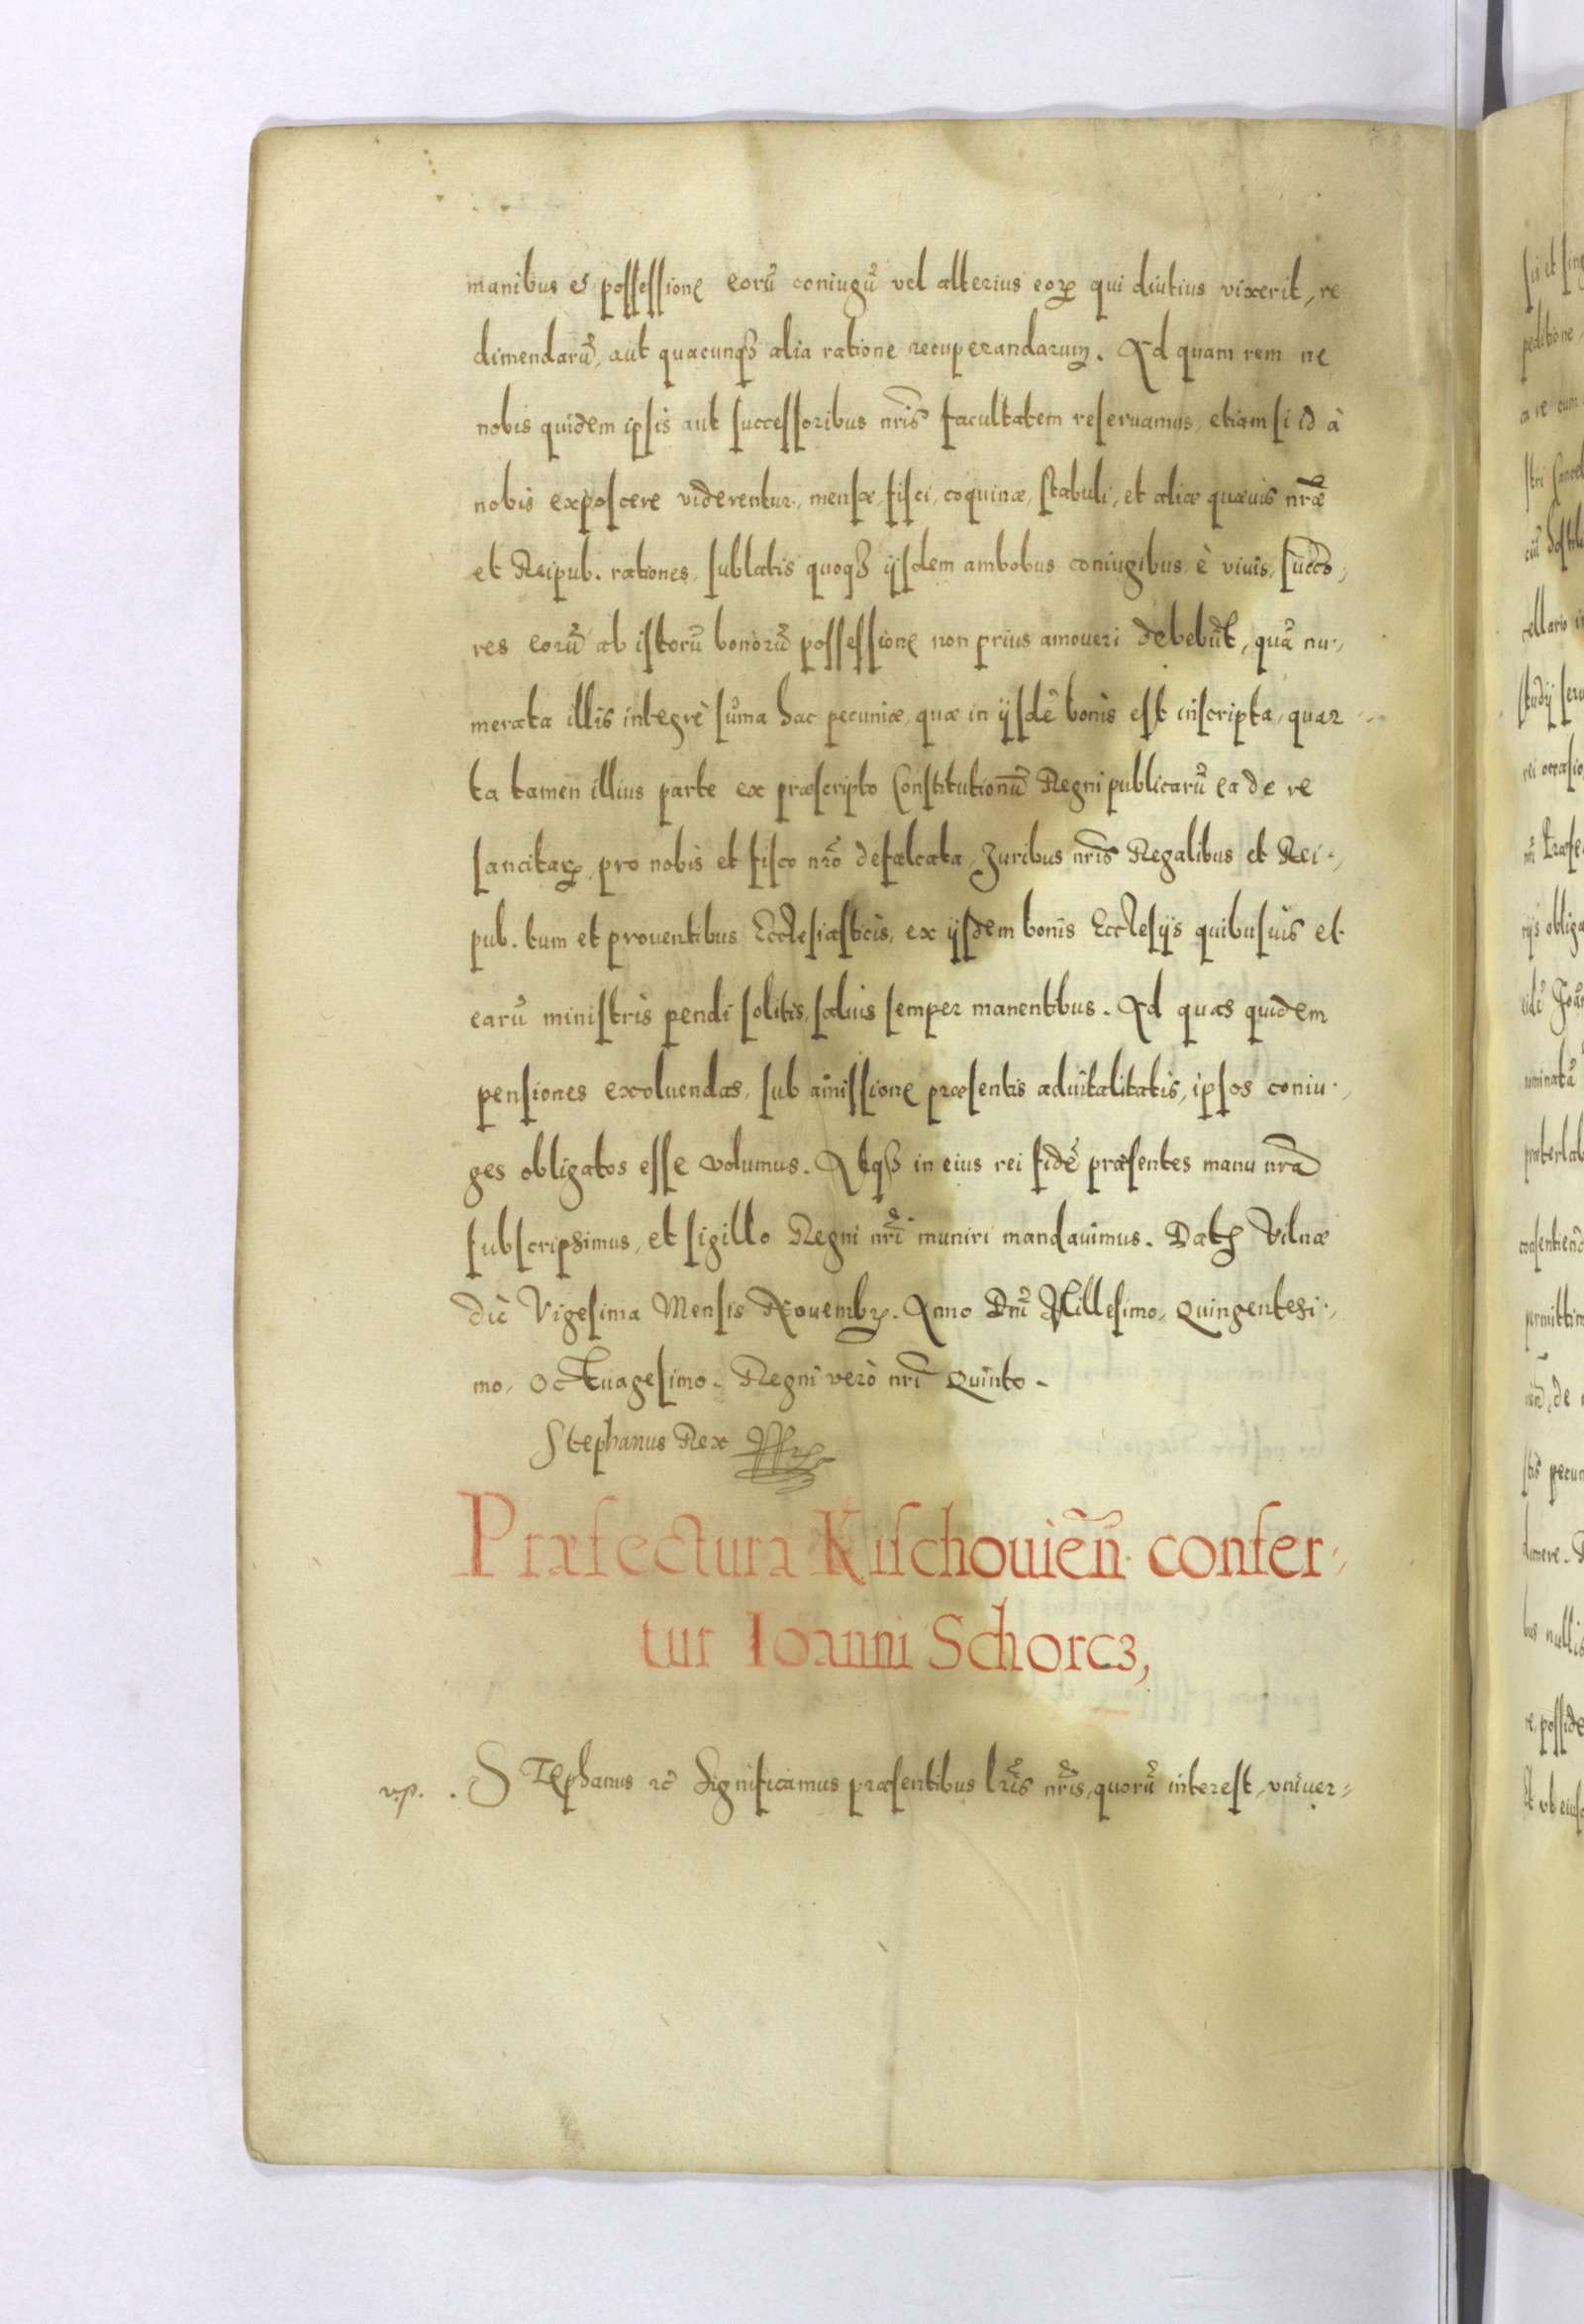 manibus et possessione eorū coniugū vel alterius eorꝝ qui diutius vixerit, re
dimendarū, aut quacunqꝫ alia ratione recuperandarum. Ad quam rem ne
nobis quidem ipsis aut successoribus nr̄is facultatem reseruamus, etiam si id à
nobis exposcere viderentur, mensæ, fisci, coquinæ, stabuli, et aliæ quævis nr̄æ
et Reipub. rationes, sublatis quoqꝫ ijsdem ambobus coniugibus è viuis, succes̄o,
res eorū ab istorū bonorū possessione non prius amoueri debebūt, quā nu,
merata illis integrè sūma hac pecuniæ, quæ in ijsdē bonis est inscripta, quar
ta tamen illius parte ex præscripto Constitutionū Regni publicarū ea de re
sancitarꝝ, pro nobis et fisco nr̄o defalcata, Juribus nr̄is Regalibus et Rei,
pub. tum et prouentibus Ecclesiasticis, ex ijsdem bonis Ecclesijs quibusuis et
earū ministris pendi solitis, saluis semper manentibus. Ad quas quidem
pensiones exoluendas, sub amissione præsentis aduitalitatis, ipsos coniu,
ges obligatos esse volumus. Atqꝫ in eius rei fidē præsentes manu nr̄a
subscripsimus, et sigillo Regni nr̄i muniri mandauimus. Datꝭ Vilnæ
die Vigesima Mensis Nouembrꝭ. Anno Dnī Millesimo, Quingentesi,
mo, Octuagesimo. Regni verò nr̄i Quinto.
Stephanus Rex
Præfectura Kischouieñ. confer,
tur Ioanni Schorcz,
v.p. . Stephanus ꝛc̄ Significamus præsentibus lr̄is nr̄is, quorū interest, vniuer=